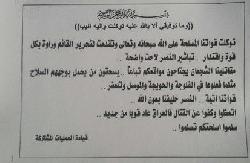 بسم الله الرحمن الرحيم
((وما توفيقي ألا بالله عليه توكلت واليه انيب))
توكلت قواتنا المسلحة على الله سبحانه وتعالى وتقدمت لتحرير القائم وراوة بكل
قوة واقتدار . تباشير النصر لاحت واضحة ..
مقاتلينا الشجعان يجتاحون مواقعكم تباعاً .. يسحقون من يحمل بوجههم السلاح
مثلما فعلوها في الفلوجة والحويجة والموصل وتلعفر ..
قواتنا آتية . النصر حليفنا بعون الله ..
اتعظوا وكفوا عن القتال فالعراق عاد قويا من جديد ..
سلموا اسلحتكم تسلموا ..
قيادة العمليات المشتركة